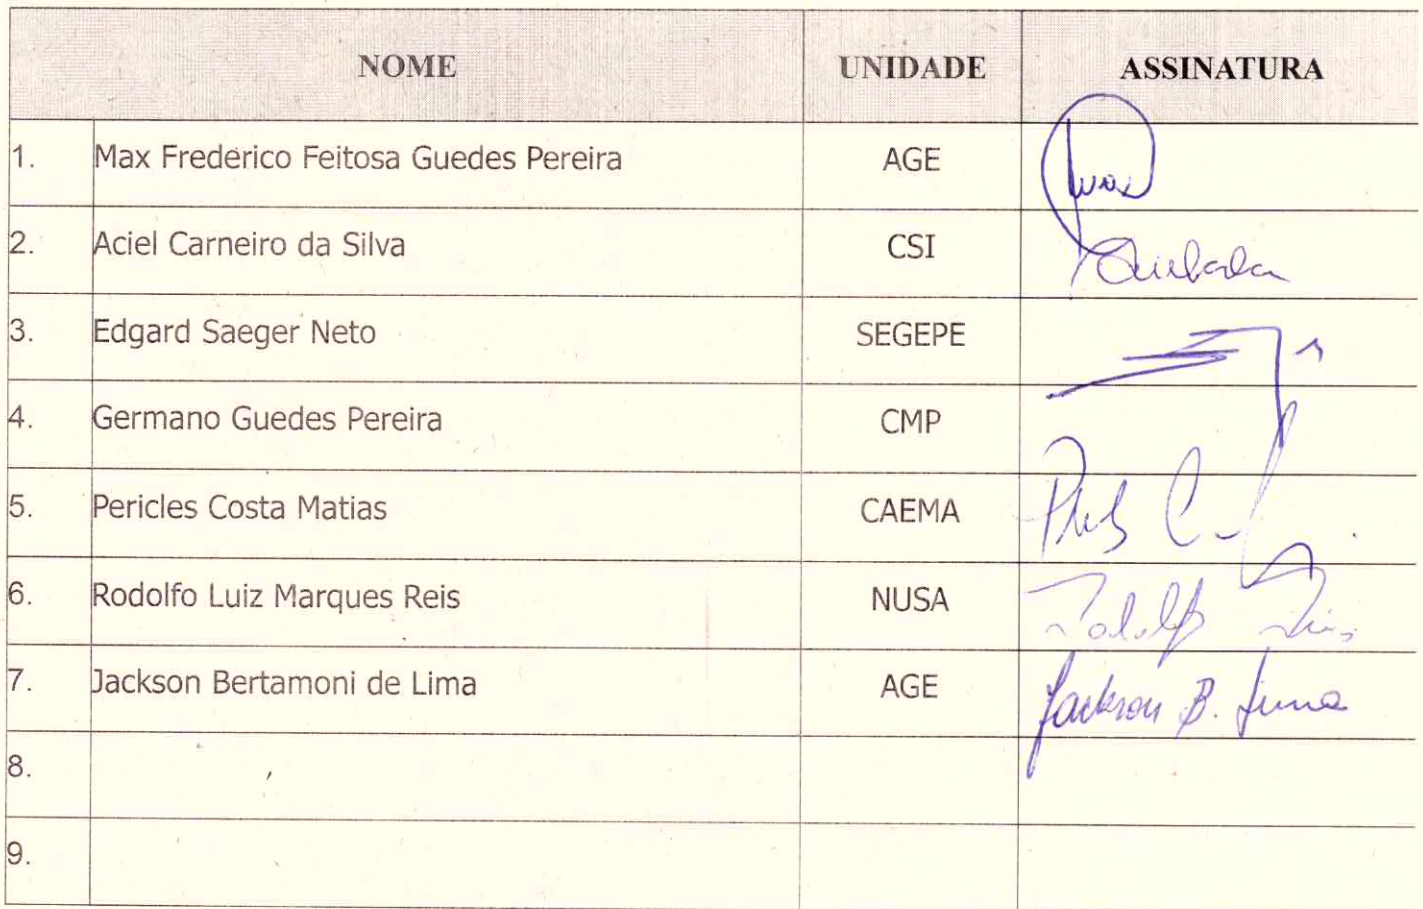 NOME UNIDADE ASSINATURA
1. Max Frederico Feitosa Guedes Pereira AGE
2. Aciel Carneiro da Silva CSI
3. Edgard Saeger Neto SEGEPE
4. Germano Guedes Pereira CMP
5. Pericles Costa Matias CAEMA
6. Rodolfo Luiz Marques Reis NUSA Rodolfo Reis
7. Jackson Bertamoni de Lima AGE Jackson B. Lima
8.
9.